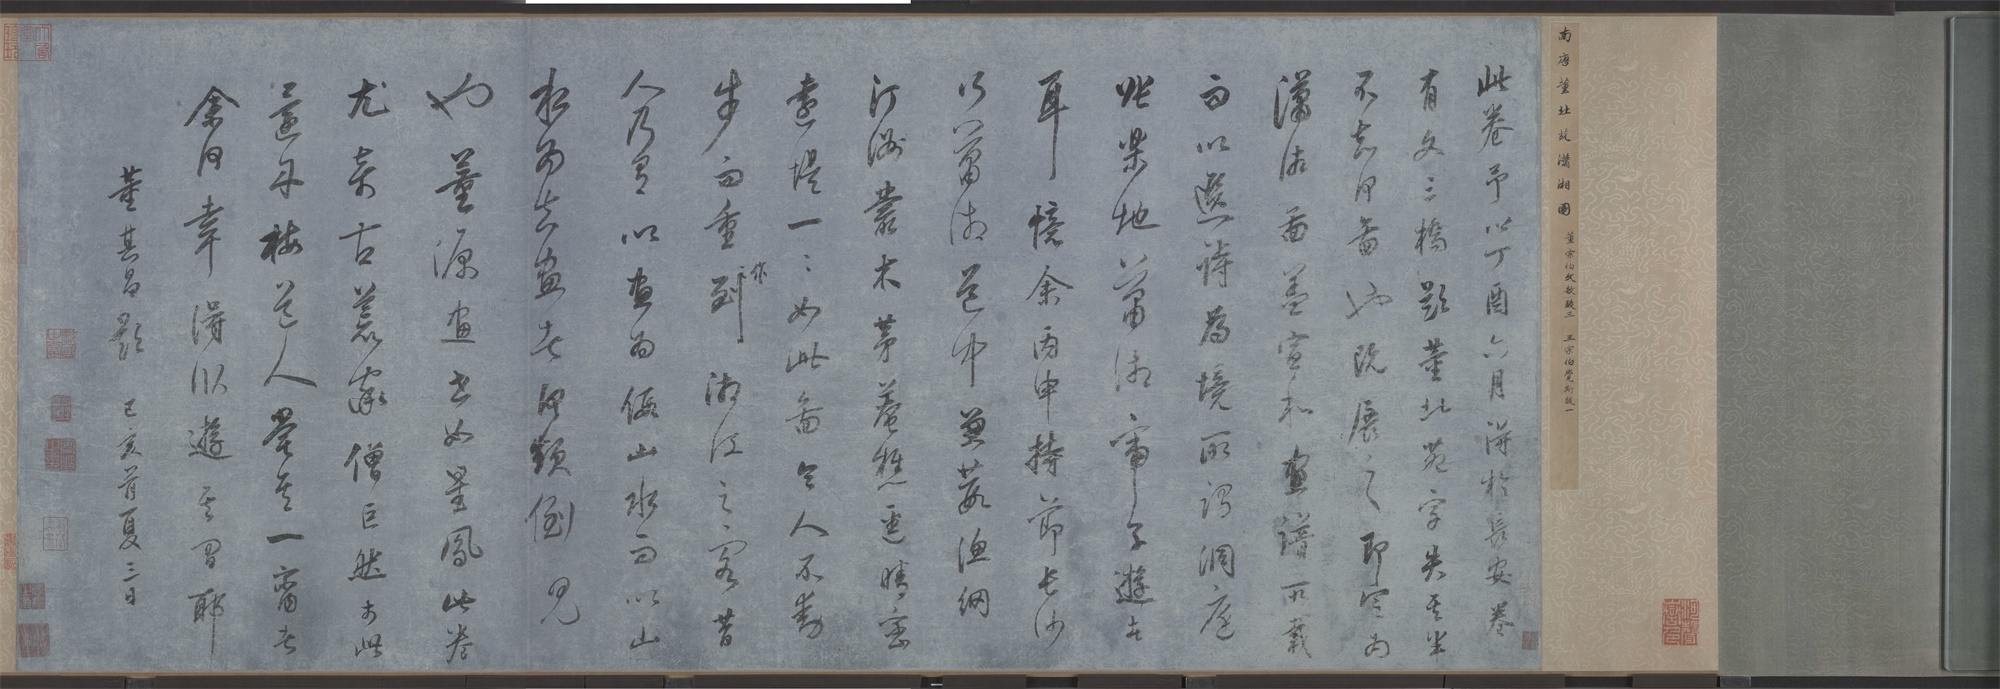 南唐董北苑瀟湘圖
董宗伯文敏跋三 王宗伯覺斯跋一
此卷予以丁酉六月得於長安卷
有文三橋題董北苑字失其半
不知何圖也既展之即定為
瀟湘圖蓋宣和畫譜所載
而以選詩為境所謂洞庭
張樂地瀟湘帝子遊者
耳憶余丙申持節長沙
行瀟湘道中蒹葭漁網
汀洲叢木茅菴樵逕晴巒
遠堤一一如此圖令人不動
步而重到湘江之客昔
作
人乃有以畫為假山水而以山
水為真畫者何顛倒見
也董源畫世如星鳳此卷
尤奇古荒率僧巨然於此
還丹梅道人嘗其一臠者
余何幸得臥遊其間耶
董其昌題 己亥首夏三日